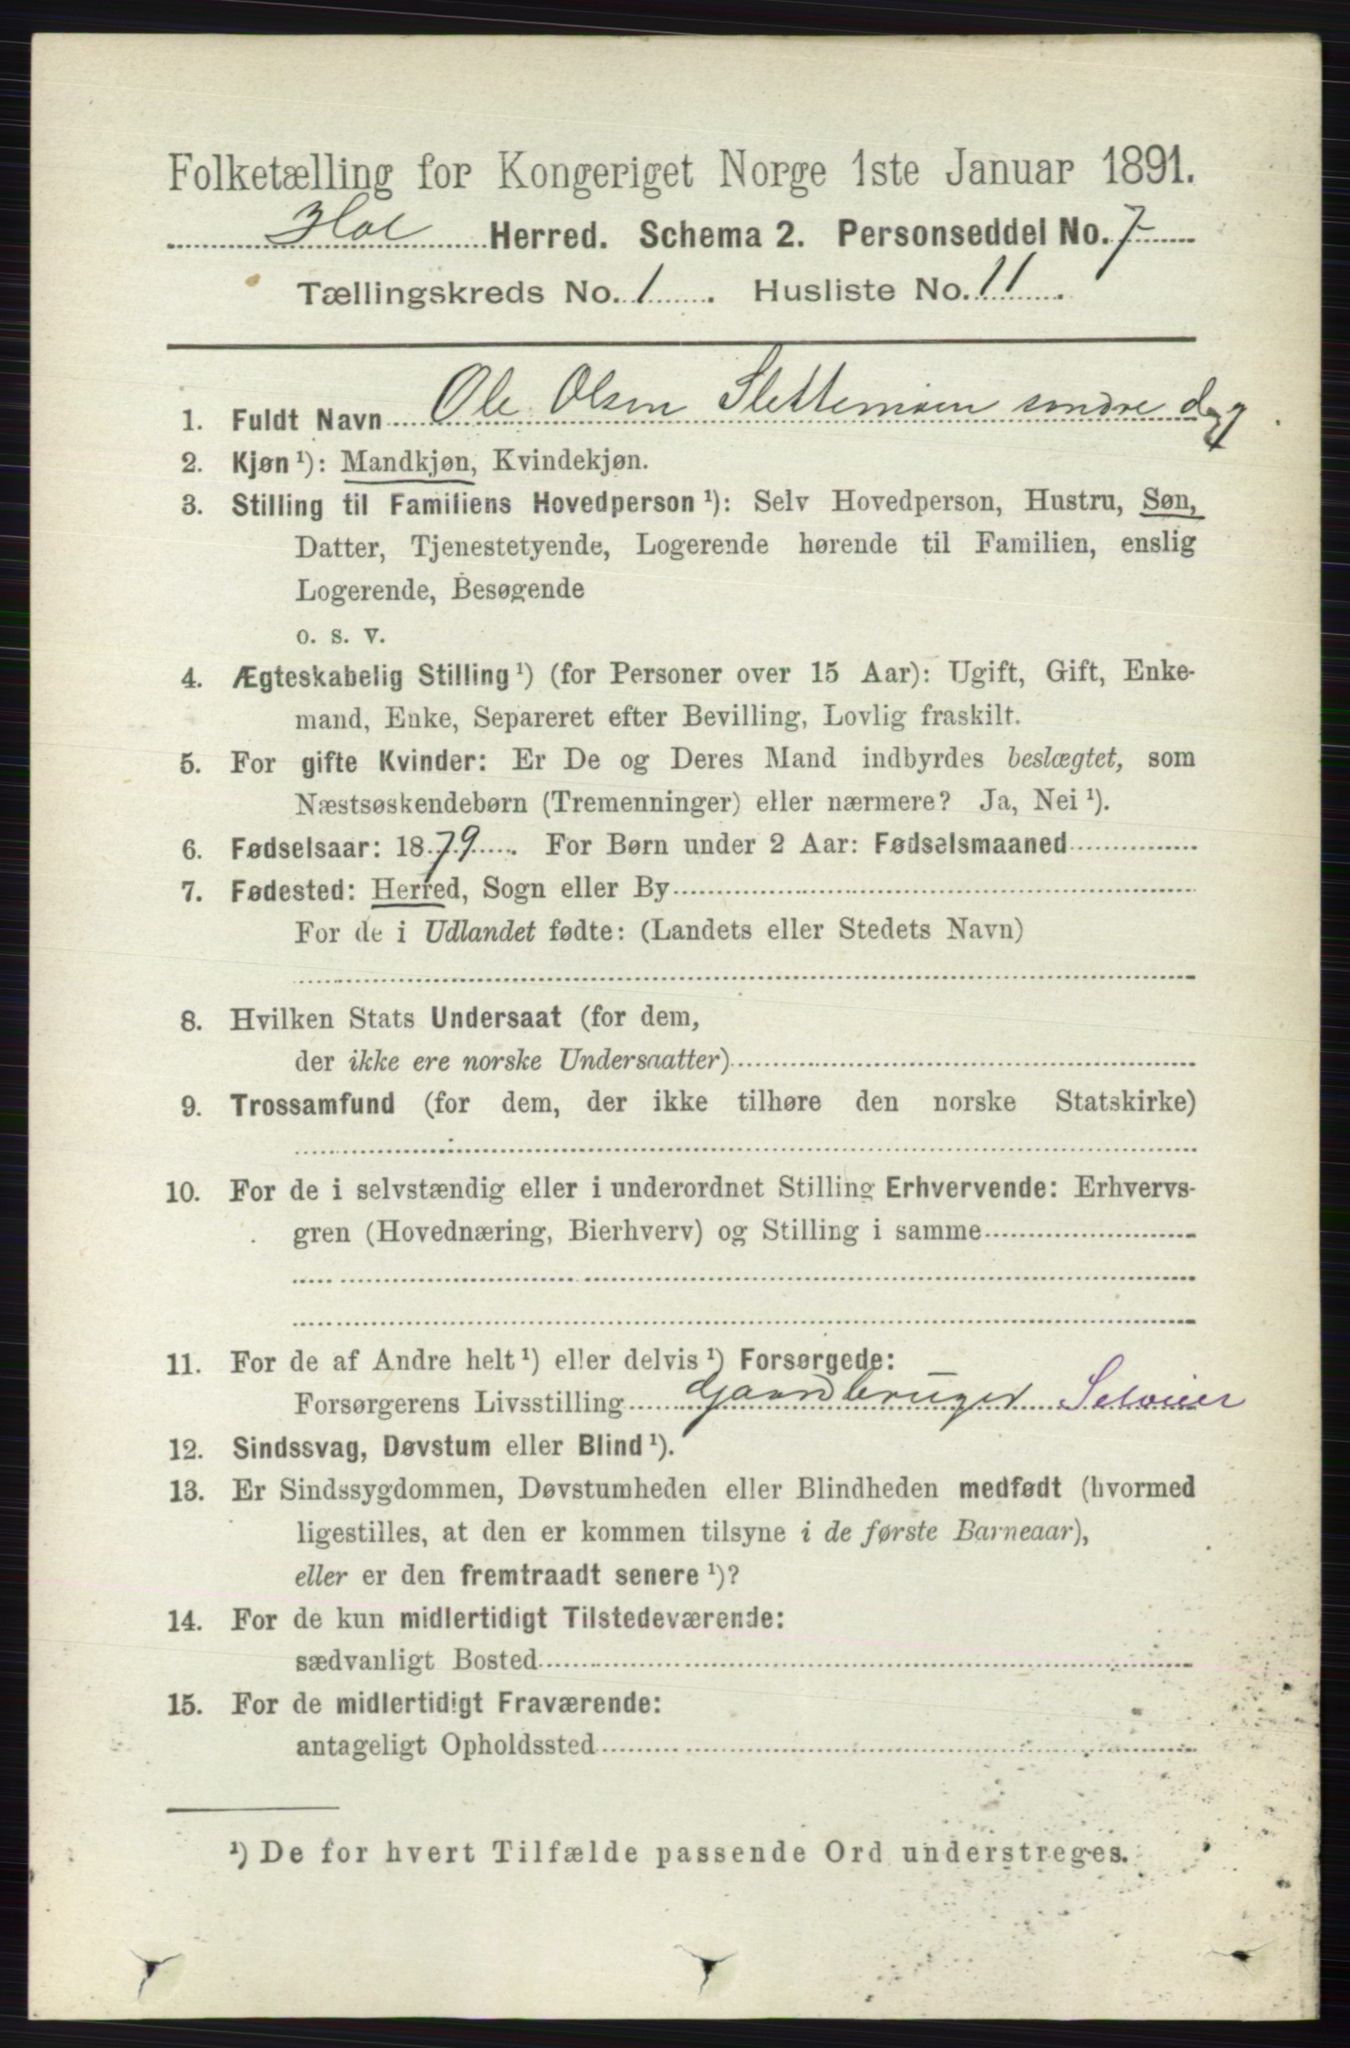 Folketælling for Kongeriget Norge 1ste Januar 1891.
Hol Herred. Schema 2. Personseddel No. 7
Tællingskreds No. 1. Husliste No. 11.
1. Fuldt Navn Ole Olsen Slettemoen søndre
2. Kjøn¹): Mandkjøn, Kvindekjøn.
3. Stilling til Familiens Hovedperson¹): Selv Hovedperson, Hustru, Søn,
Datter, Tjenestetyende, Logerende hørende til Familien, enslig
Logerende, Besøgende
o. s. v.
4. Ægteskabelig Stilling¹) (for Personer over 15 Aar): Ugift, Gift, Enke-
mand, Enke, Separeret efter Bevilling, Lovlig fraskilt.
5. For gifte Kvinder: Er De og Deres Mand indbyrdes beslægtet, som
Næstsøskendebørn (Tremenninger) eller nærmere? Ja, Nei¹).
6. Fødselsaar: 1879. For Børn under 2 Aar: Fødselsmaaned
7. Fødested: Herred, Sogn eller By
For de i Udlandet fødte: (Landets eller Stedets Navn)
8. Hvilken Stats Undersaat (for dem,
der ikke ere norske Undersaatter)
9. Trossamfund (for dem, der ikke tilhøre den norske Statskirke)
10. For de i selvstændig eller i underordnet Stilling Erhvervende: Erhvervs-
gren (Hovednæring, Bierhverv) og Stilling i samme
11. For de af Andre helt¹) eller delvis¹) Forsørgede:
Forsørgerens Livsstilling Gaardbruger Selveier
12. Sindssvag, Døvstum eller Blind¹).
13. Er Sindssygdommen, Døvstumheden eller Blindheden medfødt (hvormed
ligestilles, at den er kommen tilsyne i de første Barneaar),
eller er den fremtraadt senere¹)?
14. For de kun midlertidigt Tilstedeværende:
sædvanligt Bosted
15. For de midlertidigt Fraværende:
antageligt Opholdssted
¹) De for hvert Tilfælde passende Ord understreges.